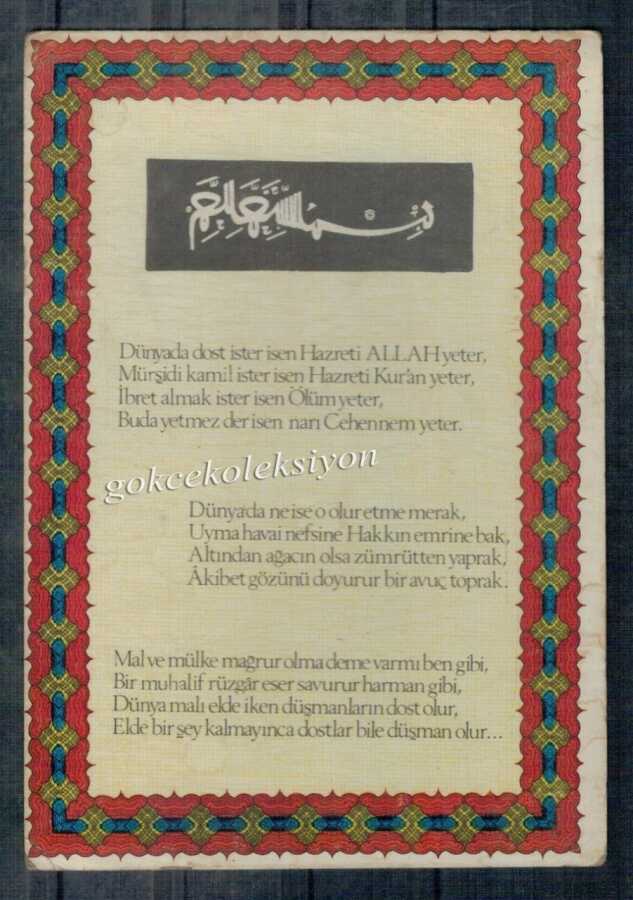 بسم الله الرحمن الرحيم
Dünyada dost ister isen Hazreti ALLAH yeter,
Mürşidi kamil ister isen Hazreti Kur'an yeter,
İbret almak ister isen Ölüm yeter,
Buda yetmez der isen narı Cehennem yeter.
gokcekoleksiyon
Dünyada ne ise o olur etme merak,
Uyma havai nefsine Hakkın emrine bak,
Altından ağacın olsa zümrütten yaprak,
Âkibet gözünü doyurur bir avuç toprak.
Mal ve mülke mağrur olma deme varmı ben gibi,
Bir muhalif rüzgâr eser savurur harman gibi,
Dünya malı elde iken düşmanların dost olur,
Elde bir şey kalmayınca dostlar bile düşman olur...